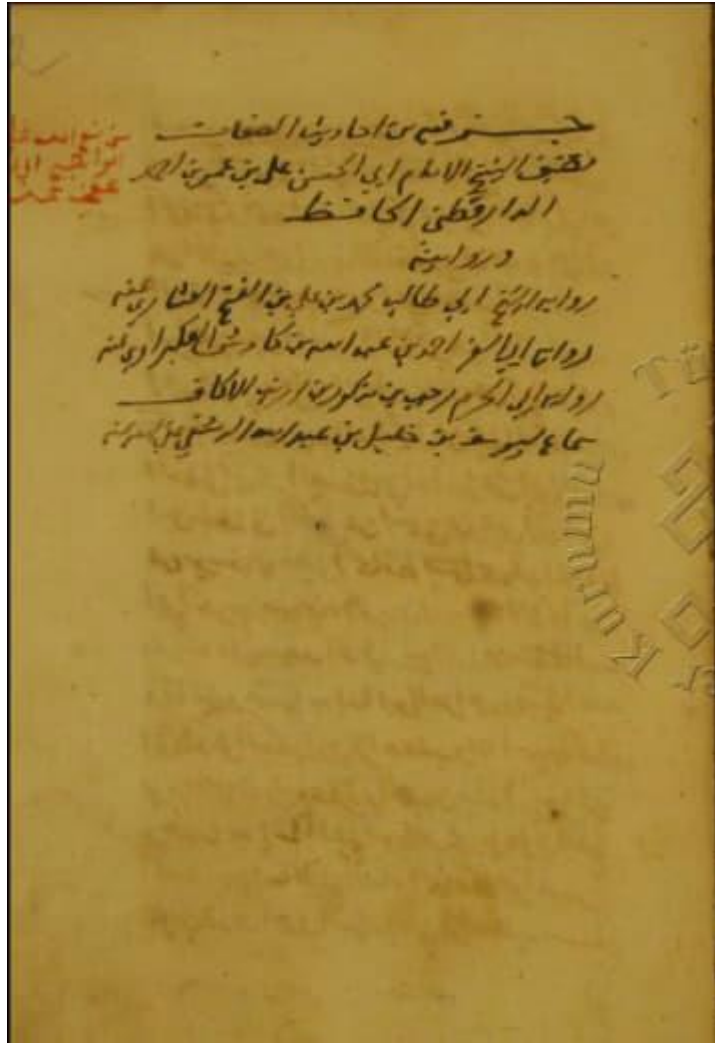 جزء فيه من احاديث الصفات
تصنيف الشيخ الامام ابي الحسن علي بن عمر بن احمد
الدارقطني الحافظ
وروايته
رواية الشيخ ابي طالب محمد بن علي بن الفتح العشاري عنه
رواية ابي العز احمد بن عبيد الله بن كادش العكبراوي عنه
رواية ابي الحرم رجب بن مذكور بن ارنب الاكاف
سماع ليوسف بن خليل بن عبد الله الدمشقي